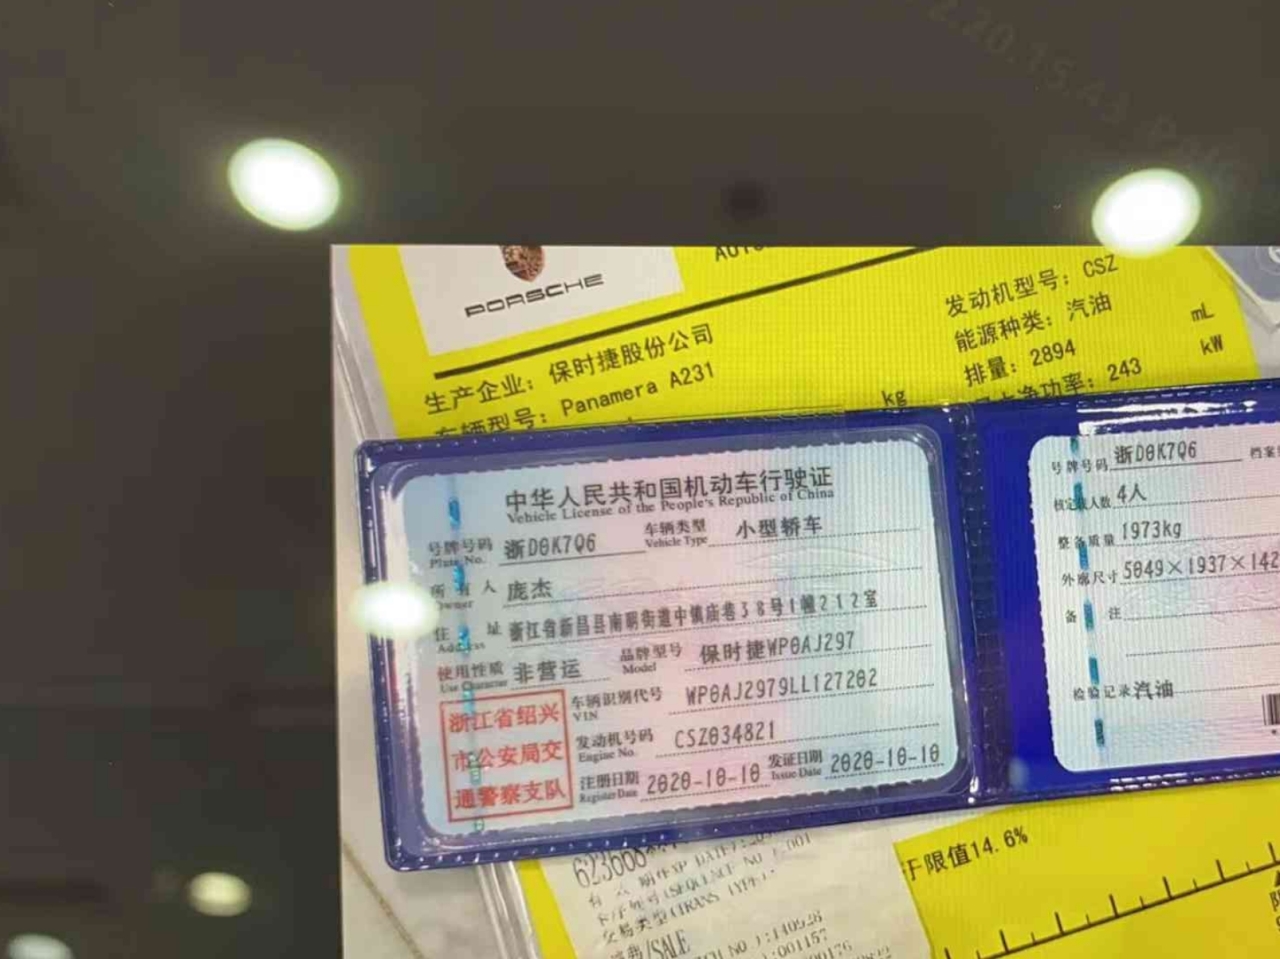 2.20.15.43
PORSCHE
生产企业：保时捷股份公司
车辆型号：Panamera A231
kg
发动机型号：CSZ
能源种类：汽油
排量：2894
mL
功率：243
kW
中华人民共和国机动车行驶证
Vehicle License of the People's Republic of China
号牌号码 浙D0K7Q6 车辆类型 小型轿车
Plate No. Vehicle Type
所有人 庞杰
Owner
住址 浙江省新昌县南明街道中镇庙巷38号1幢212室
Address
使用性质 非营运 品牌型号 保时捷WP0AJ297
Use Character Model
浙江省绍兴
市公安局交
通警察支队
车辆识别代号 WP0AJ2979LL127202
VIN
发动机号码 CSZ034821
Engine No.
注册日期 2020-10-10 发证日期 2020-10-10
Register Date Issue Date
号牌号码 浙D0K7Q6 档案
核定载人数 4人
整备质量 1973kg
外廓尺寸 5049×1937×142
备注
检验记录 汽油
623668
(SEQUENCE NO
交易类型(TRANS TYPE):
消费/SALE
:140526
:001157
于限值14.6%